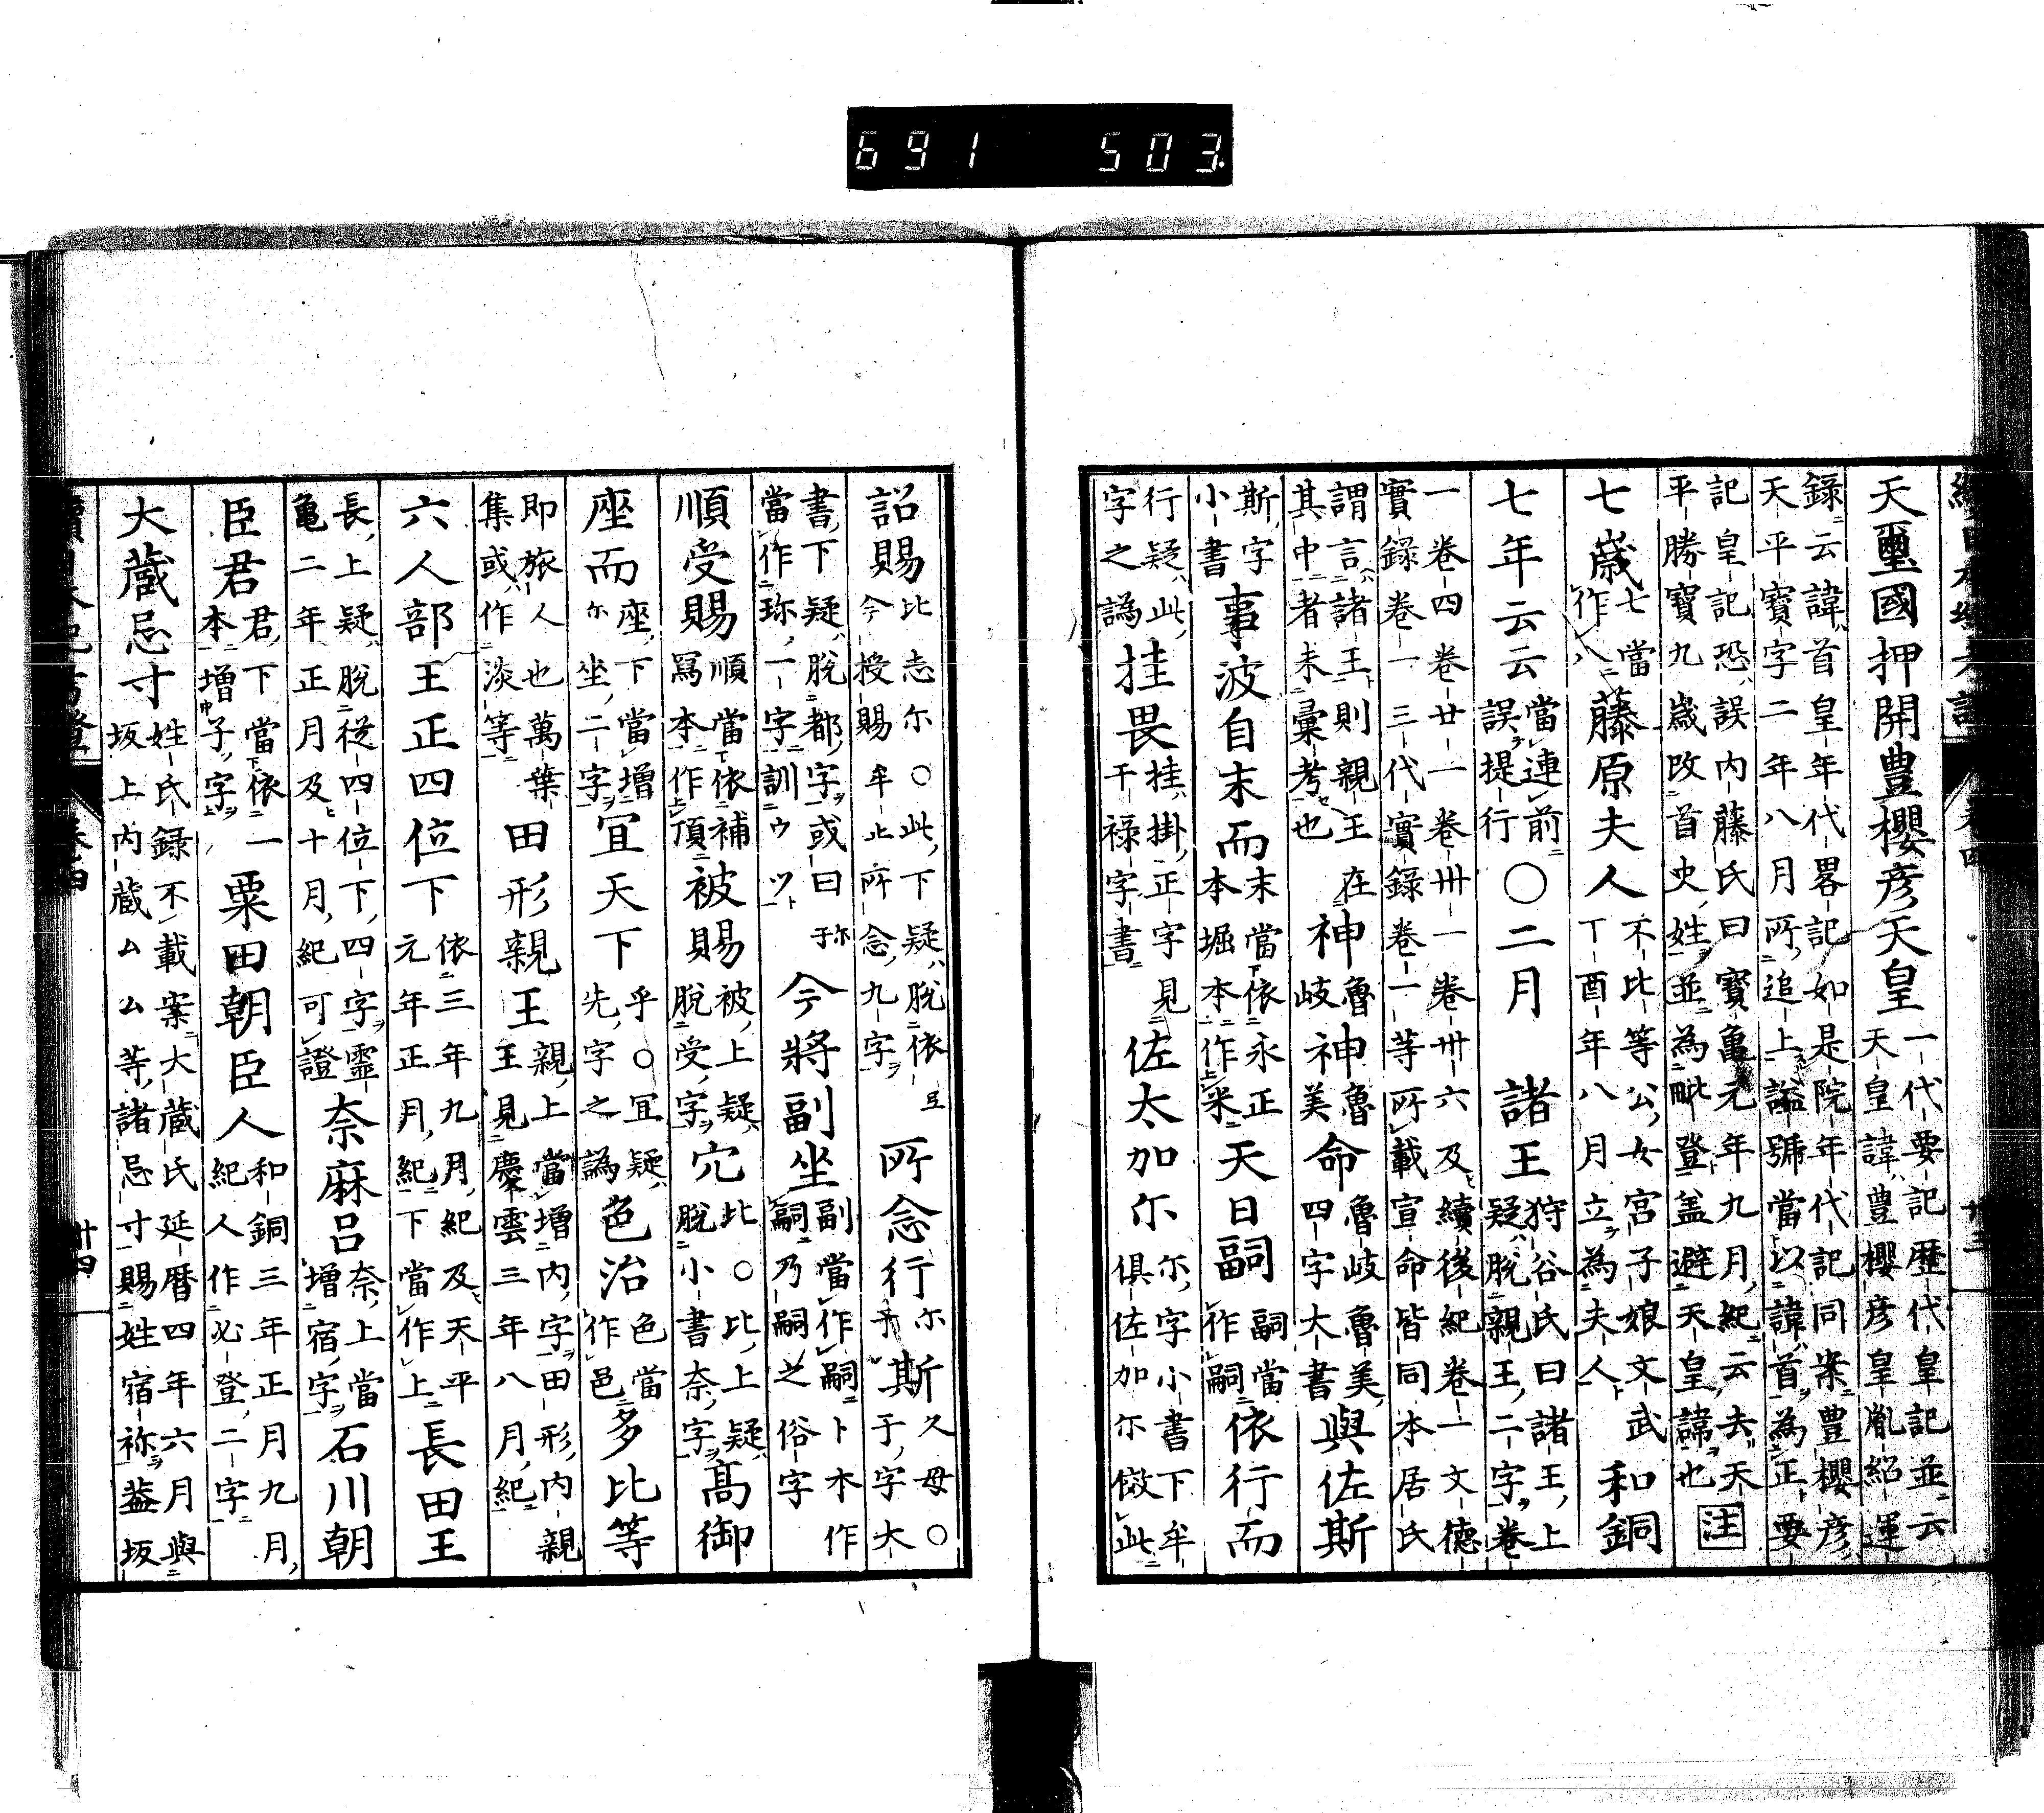 691 503
天璽國押開豊櫻彦天皇 一代要記歴代皇記並云天皇諱豊櫻彦皇胤紹運
録云諱首皇年代畧記如是院年代記同案豊櫻彦天平寳字二年八月所追上諡號當以諱首為正要
記皇記恐誤内藤氏曰寳亀元年九月紀云去天平勝寳九歳改首史姓並為毗登盖避天皇諱也 注
七歳 七當作八 藤原夫人 不比等公女宮子娘文武丁酉年八月立為夫人 和銅
七年云云 當連前誤提行 ○二月 諸王 狩谷氏曰諸王上疑脱親王二字巻
一巻四巻廿一巻卅一巻卅六及續後紀巻一文徳實録巻一三代實録巻一等所載宣命皆同本居氏
謂言諸王則親王在其中者未彙考也 神魯岐神魯美命 魯岐魯美四字大書 與佐斯
斯字小書 事波自末而 末當依永正本堀本作米 天日嗣 嗣當作嗣 依行而
行疑此字之譌 挂畏 挂掛正字見干禄字書 佐太加尓 尓字小書下牟倶佐加尓倣此
詔賜 比志尓○此下疑脱依今授賜牟止所念九字 所念行 尓 斯 久母○于字大
書下疑脱都字或曰當作珎一字訓ウツ 今將副坐 副當作嗣卜木作嗣乃嗣之俗字
順受賜 順當依補冩本作頂 被賜 被上疑脱受字 穴 比○比上疑脱小書奈字 髙御
座而 座下當増尓坐二字 宜天下 乎○冝疑先字之譌 色治 色當作邑 多比等
即旅人也萬葉集或作淡等 田形親王 親上當増内字田形内親王見慶雲三年八月紀
六人部王正四位下 依三年九月紀及天平元年正月紀下當作上 長田王
長上疑脱從四位下四字靈亀二年正月及十月紀可證 奈麻呂 奈上當増宿字 石川朝
臣君 君下當依一本増子字 粟田朝臣人 和銅三年正月九月紀人作必登二字
大蔵忌寸 姓氏録不載案大蔵氏延暦四年六月與坂上内蔵厶厶等諸忌寸賜姓宿祢葢坂